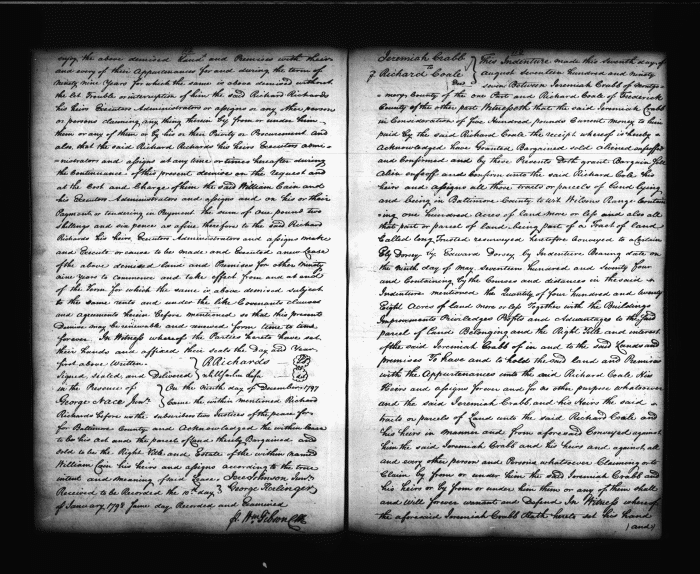 enjoy the above demised Land and Premises with their
and every of their Appurtenances for and during the term of
ninety nine Years for which the same is above demised without
the let Trouble or interruption of him the said Richard Richards
his heirs Executors Administrators or assigns or any other person
or persons claiming any thing therein by from or under him
them or any of them or by his or their Privity or Procurement And
also that the said Richard Richards his heirs Executors admi-
nistrators and assigns at any time or times hereafter during
the Continuance of this present demise on the request and
at the Cost and Charge of him the said William Cain and
his Executors Administrators and assigns and on his or their
Payment or tendering in Payment the sum of one pound two
shillings and six pence as a fine therefore to the said Richard
Richards his heirs Executors Administrators and assigns make
and Execute or cause to be made and Executed another Lease
of the above demised land and Premises for other ninety
nine years to commence and take effect from and at the end
of the Term for which the same is above demised subject
to the same rents and under the like Covenants clauses
and agreements herein before mentioned so that this present
Demise may be renewable and renewed from time to time
forever. In Witness whereof the Parties hereto have set
their hands and affixed their seals the Day and Year
first above Written R Richards
Signed sealed and Delivered
in the Presence of On the Ninth day of December 1797
George Nace Junr. Came the within mentioned Richard
Richards before the subscribers two Justices of the peace for
for Baltimore County and Acknowledged the within Lease
to be his act and the parcel of Land thereby Bargained and
sold to be the Right Title and Estate of the within named
William Cain his heirs and assigns according to the true
intent and Meaning of said Lease
Received to be Recorded the 10th day
of January 1798 Same day Recorded and Examined
Wm Gibson Clk
Jeremiah Crabb
to
Richard Coale
This Indenture made this Seventh day of
August seventeen hundred and ninety
seven Between Jeremiah Crabb of Montgo-
mery County of the one Part and Richard Coale of Frederick
County of the other part Witnesseth that the said Jeremiah Crabb
in Consideration of Five Hundred pounds Current money to him
paid by the said Richard Coale the receipt whereof is hereby
Acknowledged have Granted Bargained sold aliened enfeoffed
and Confirmed and by these Present Doth grant Bargain Sell
Alien enfeoff and Confirm unto the said Richard Coale his
heirs and assigns all those tracts or parcels of Land lying
and being in Baltimore County to wit Wilsons Range Contain-
ing one hundred Acres of land more or less and also all
that part or parcel of land being part of a Tract of land
Called long Trusted resurveyed heretofore Conveyed to a Certain
Ely Dorsey by Edward Dorsey by Indenture Bearing date on
the ninth day of may Seventeen hundred and Twenty Four
and Containing by the Courses and distances in the said
Indenture mentioned the Quantity of four hundred and twenty
Eight Acres of land more or less Together with the Buildings
Improvements Priviledges Profits and Advantages to the said
parcel of Land Belonging and the Right Title and interest
of the said Jeremiah Crabb of in and to the said Lands and
premises To have and to hold the said land and Premises
with the Appurtenances unto the said Richard Coale His
Heirs and assigns forever and for no other purpose whatsoever
and the said Jeremiah Crabb and his Heirs the said
tracts or parcels of Land unto the said Richard Coale and
his heirs in manner and form aforesaid Conveyed against
him the said Jeremiah Crabb and his heirs and against all
and every other person and Persons whatsoever Claiming or to
Claim by from or under him the said Jeremiah Crabb and
his heirs or by from or under him them or any of them shall
and will forever warrant and Defend In Witness whereof
the aforesaid Jeremiah Crabb Hath hereto set his hand
(and)